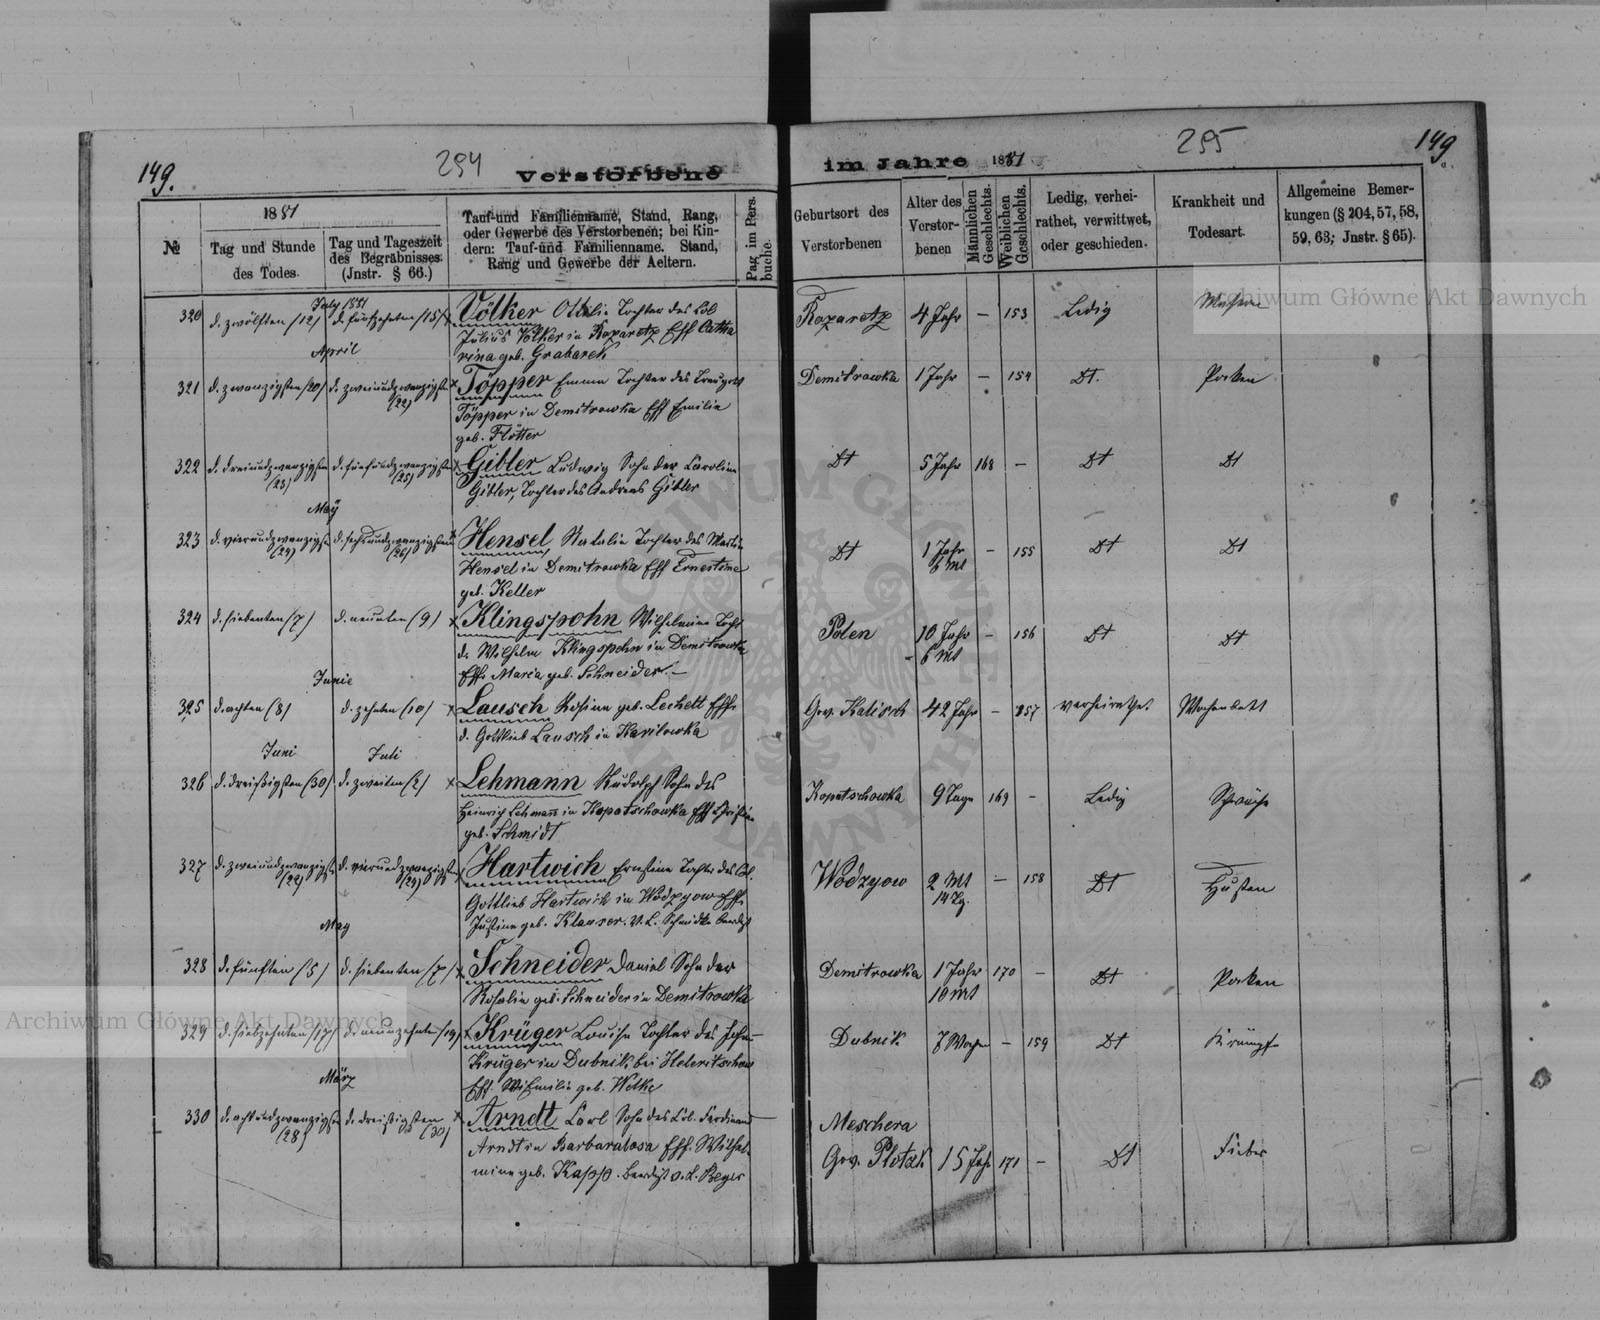 149. 254 Verstorbene
im Jahre 1881 255 149.
№
1881
Tag und Stunde des Todes.
Tag und Tageszeit des Begräbnisses. (Jnstr. § 66.)
Tauf- und Familienname, Stand, Rang,
oder Gewerbe des Verstorbenen; bei Kin-
dern: Tauf- und Familienname. Stand,
Rang und Gewerbe der Aeltern.
Pag im Pers. buche.
Geburtsort des Verstorbenen
Alter des Verstor- benen
Männlichen Geschlechts.
Weiblichen Geschlechts.
Ledig, verhei- rathet, verwittwet, oder geschieden.
Krankheit und Todesart.
Allgemeine Bemer- kungen (§ 204, 57, 58, 59, 63; Jnstr. § 65).
July 1881
320 d. zwölften (12) d. fünfzehnten (15) x Völker Ottilie Tochter des Col Rozaretz 4 Jahr – 153 Ledig Masern
Julius Völker in Rozaretz Eff Catha
rina geb. Grabarek
April
321 d. zwanzigsten (20) d. zweiundzwanzigsten (22) x Töpper Emma Tochter des Demitrowka 1 Jahr – 154 Dt. Pocken
Töpper in Demitrowka Eff Emilie
geb. Flötter
322 d. dreiundzwanzigsten (23) d. fünfundzwanzigsten (25) x Gibler Ludwig Sohn der Caroline Dt 5 Jahr 168 – Dt Dt
Gibler, Tochter des Andreas Gibler
May
323 d. vierundzwanzigsten (24) d. sechsundzwanzigsten (26) Hensel Natalie Tochter des Martin Dt 1 Jahr 6 Mt – 155 Dt Dt
Hensel in Demitrowka Eff Ernestine
geb. Keller
324 d. siebenten (7) d. neunten (9) x Klingspohn Wilhelmine Tocht Polen 10 Jahr 6 Mt – 156 Dt Dt
d. Wilhelm Klingspohn in Demitrowka
Eff. Maria geb. Schneider. –
Junie
325 d. achten (8) d. zehnten (10) x Lausch Rosine geb. Lechelt Eff. Gov. Kalisch 42 Jahr – 157 verheirathet Wochenbett
d. Gottlieb Lausch in Karilowka
Juni Juli
326 d. dreißigsten (30) d. zweiten (2) x Lehmann Rudolph Sohn des Kopatschowka 9 Tage 169 – Ledig Schwäche
Heinrich Lehmann in Kopatschowka Eff Christine
geb. Schmidt
327 d. zweiundzwanzigsten (22) d. vierundzwanzigsten (24) x Hartwich Ernstine Tochter des Col. Wodzyow 2 Mt 14 Tg. – 158 Dt Husten
Gottlieb Hartwich in Wodzyow Eff.
Justine geb. Klauser. v. L. Schmidtke beerdigt
May
328 d. fünften (5) d. siebenten (7) x Schneider Daniel Sohn der Demitrowka 1 Jahr 10 Mt 170 – Dt Pocken
Rosalie geb. Schneider in Demitrowka
329 d. siebzehnten (17) d. neunzehnten (19) x Krüger Louise Tochter des Johan Dubnik 7 Wochen – 159 Dt Krämpf
Krüger in Dubnik, bei
Eff. Emilie geb. Welke
März
330 d. achtundzwanzigsten (28) d. dreißigsten (30) x Arndt Carl Sohn des Col. Ferdinand Meschera Gov. Plotzk 15 Jahr 171 – Dt Fieber
Arndt in Barbaratosa Eff. Wilhel-
mine geb. Kapp. beerdigt v. L. Beyer
Archiwum Główne Akt Dawnych
Archiwum Główne Akt Dawnych
ARCHIWUM GŁÓWNE AKT DAWNYCH